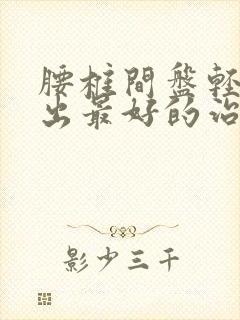 腰椎間盤輕
出最好的治
影少三千